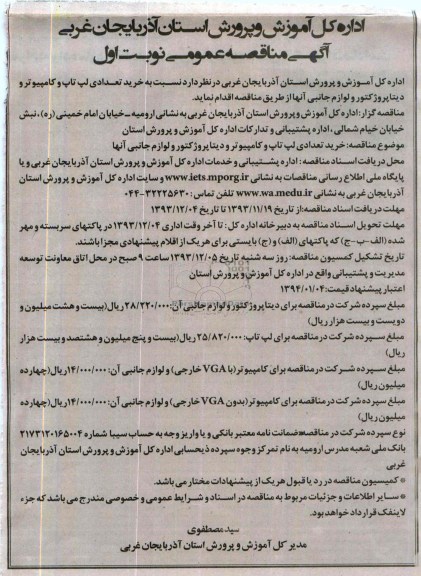 اداره کل آموزش و پرورش استان آذربایجان غربی
آگهی مناقصه عمومی نوبت اول
اداره کل آموزش و پرورش استان آذربایجان غربی در نظر دارد نسبت به خرید تعدادی لپ تاپ و کامپیوتر و
دیتا پروژکتور و لوازم جانبی آنها از طریق مناقصه اقدام نماید.
مناقصه گزار: اداره کل آموزش و پرورش استان آذربایجان غربی به نشانی ارومیه ـ خیابان امام خمینی (ره)، نبش
خیابان خیام شمالی، اداره پشتیبانی و تدارکات اداره کل آموزش و پرورش استان
موضوع مناقصه: خرید تعدادی لپ تاپ و کامپیوتر و دیتا پروژکتور و لوازم جانبی آنها
محل دریافت اسناد مناقصه: اداره پشتیبانی و خدمات اداره کل آموزش و پرورش استان آذربایجان غربی و یا
پایگاه ملی اطلاع رسانی مناقصات به نشانی www.iets.mporg.ir و سایت اداره کل آموزش و پرورش استان
آذربایجان غربی به نشانی www.wa.medu.ir تلفن تماس: ۳۲۲۲۵۶۳۰-۰۴۴
مهلت دریافت اسناد مناقصه: از تاریخ ۱۳۹۳/۱۱/۱۹ تا تاریخ ۱۳۹۳/۱۲/۰۴
مهلت تحویل اسناد مناقصه به دبیرخانه اداره کل: تا آخر وقت اداری ۱۳۹۳/۱۲/۰۴ در پاکتهای سربسته و مهر
شده (الف-ب-ج) که پاکتهای (الف) و (ج) بایستی برای هر یک از اقلام پیشنهادی مجزا باشند.
تاریخ تشکیل کمسیون مناقصه: روز سه شنبه تاریخ ۱۳۹۳/۱۲/۰۵ ساعت ۹ صبح در محل اتاق معاونت توسعه
مدیریت و پشتیبانی واقع در اداره کل آموزش و پرورش استان
اعتبار پیشنهاد قیمت: ۱۳۹۴/۰۱/۰۴
مبلغ سپرده شرکت در مناقصه برای دیتا پروژکتور و لوازم جانبی آن: ۲۸/۲۲۰/۰۰۰ ریال (بیست و هشت میلیون و
دویست و بیست هزار ریال)
مبلغ سپرده شرکت در مناقصه برای لپ تاپ: ۲۵/۸۲۰/۰۰۰ ریال (بیست و پنج میلیون و هشتصد و بیست هزار
ریال)
مبلغ سپرده شرکت در مناقصه برای کامپیوتر (با VGA خارجی) و لوازم جانبی آن: ۱۴/۰۰۰/۰۰۰ ریال (چهارده
میلیون ریال)
مبلغ سپرده شرکت در مناقصه برای کامپیوتر (بدون VGA خارجی) و لوازم جانبی آن: ۱۴/۰۰۰/۰۰۰ ریال (چهارده
میلیون ریال)
نوع سپرده شرکت در مناقصه: ضمانت نامه معتبر بانکی و یا واریز وجه به حساب سیبا شماره ۲۱۷۳۱۲۰۱۶۵۰۰۴
بانک ملی شعبه مدرس ارومیه به نام تمرکز وجوه سپرده ذیحسابی اداره کل آموزش و پرورش استان آذربایجان
غربی
* کمیسیون مناقصه در رد یا قبول هر یک از پیشنهادات مختار می باشد.
* سایر اطلاعات و جزئیات مربوط به مناقصه در اسناد و شرایط عمومی و خصوصی مندرج می باشد که جزء
لاینفک قرارداد خواهد بود.
سید مصطفوی
مدیر کل آموزش و پرورش استان آذربایجان غربی